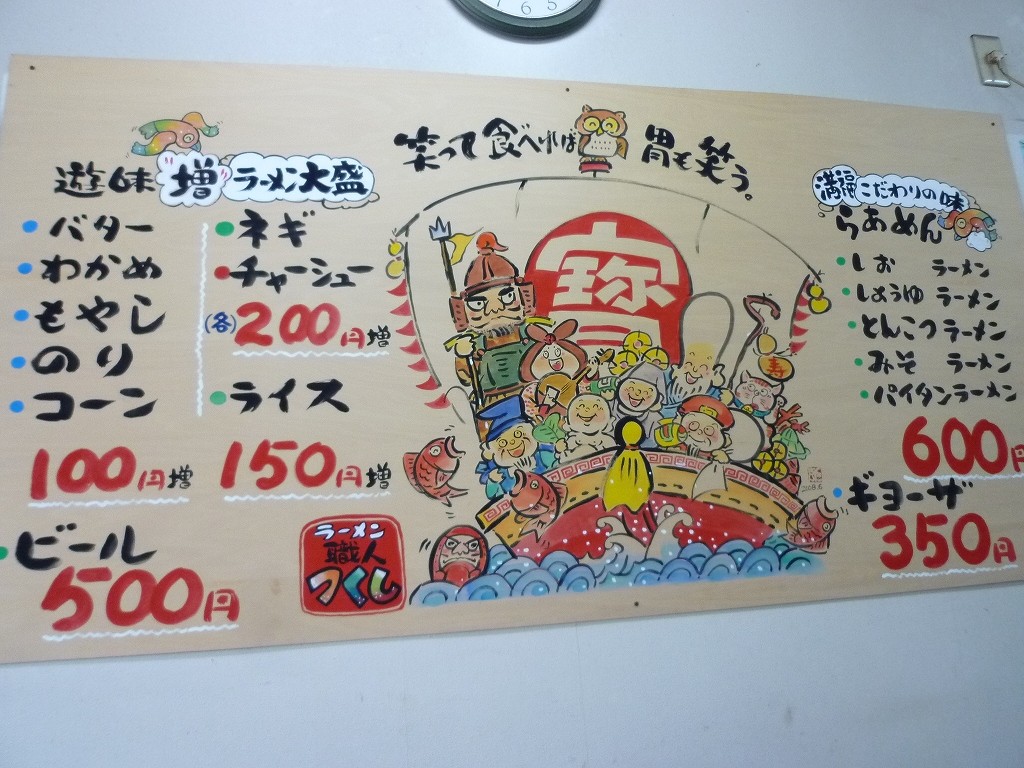 笑って食べれば胃も笑う。
遊味"増"ラーメン大盛
バター
わかめ
もやし
のり
コーン
100円増
ネギ
チャーシュー
(各)200円増
ライス
150円増
ビール
500円
ラーメン
職人
つくし
寳
寿
満福こだわりの味
らあめん
しお ラーメン
しょうゆ ラーメン
とんこつラーメン
みそ ラーメン
パイタンラーメン
600円
ギョーザ
350円
7 6 5